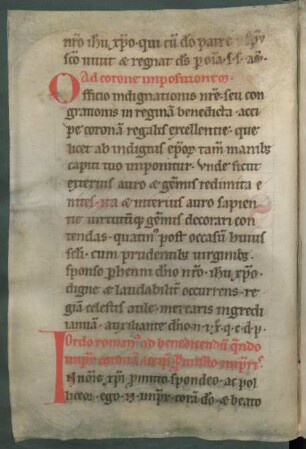 nr̄o ihu xp̄o. qui cū dō patre
sc̄o uiuit & regnat d̄s p om̄a. s. s. am̄.
Ad corone impositionem.
Officio indignationis nr̄e. seu con
grationis in reginā benedicta. acci
pe coronā regalis excellentie. que
licet ab indignis ep̄oꝝ tam̄ manib;
capiti tuo imponitur. Vnde sicut
exterius auro & gēmis redimita e
nites. ita & interius auro sapien
tie uirtutūq; gēmis decorari con
tendas. quatin' post occasū huius
scl̄i. cum prudentib; uirginib;
sponso phenni dn̄o nr̄o. ihu xp̄o.
digne & laudabilit̄ occurrens. re
giā celestis aule. mearis ingredi
ianuā. auxiliante dn̄o. n. i. x. q. c. d. p.
Ordo roman' ad benedicendū q̄ndo
In nōie xp̄i pmitto spondeo. ac pol
liceor. ego. N. impr̄. corā dō. & beato